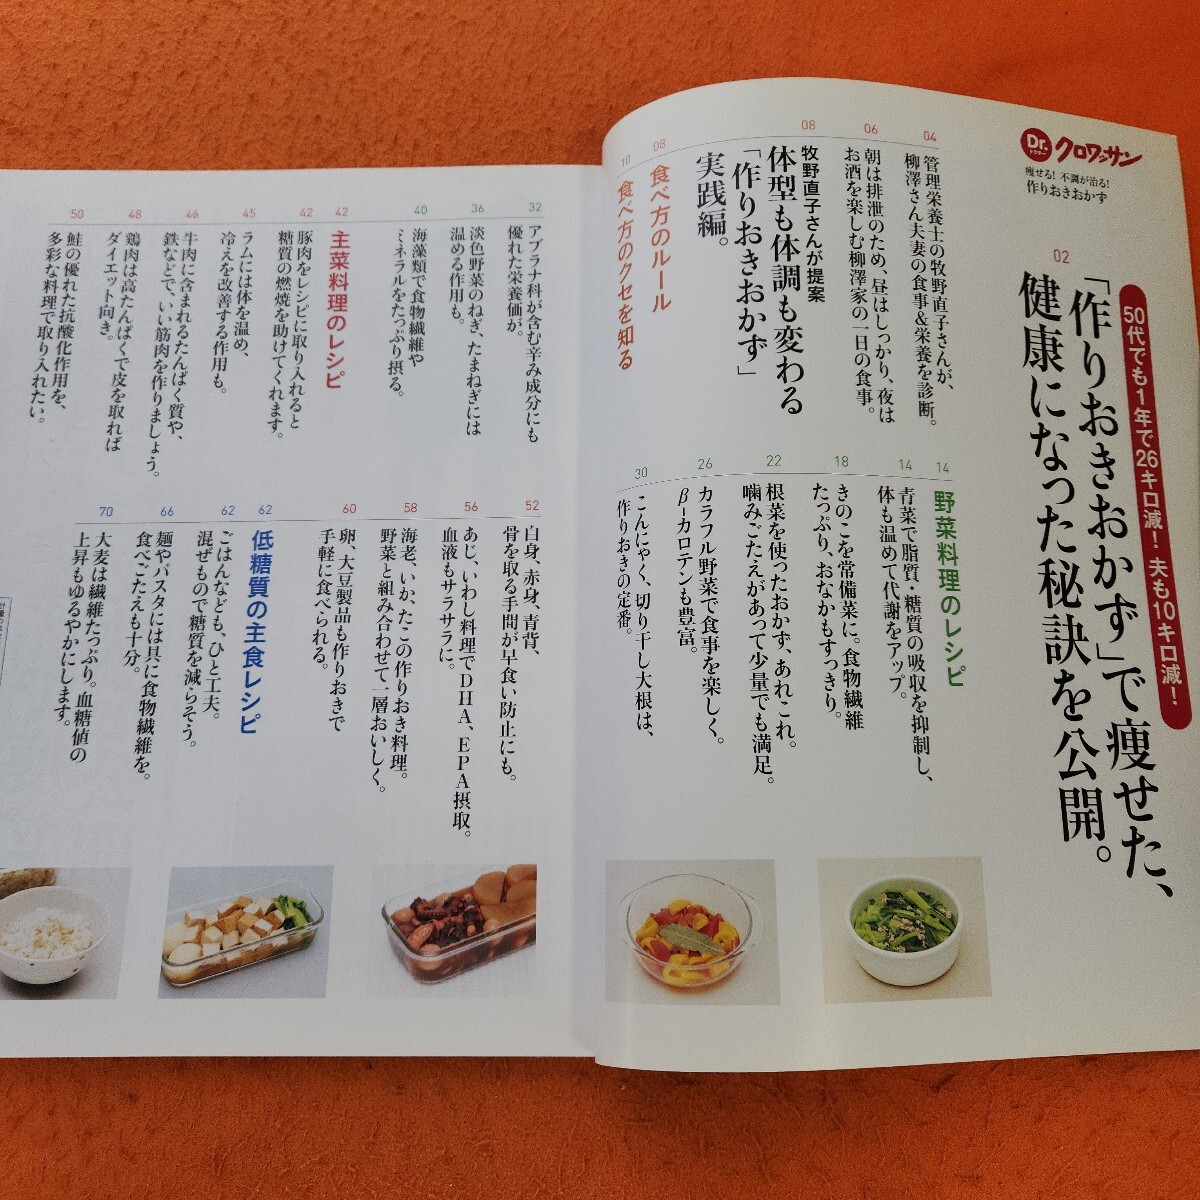 Dr.
ドクター
クロワッサン
痩せる! 不調が治る!
作りおきおかず
50代でも1年で26キロ減! 夫も10キロ減!
02
「作りおきおかず」で痩せた、
健康になった秘訣を公開。
04
管理栄養士の牧野直子さんが、
柳澤さん夫妻の食事&栄養を診断。
06
朝は排泄のため、昼はしっかり、夜は
お酒を楽しむ柳澤家の一日の食事。
08
牧野直子さんが提案
体型も体調も変わる
「作りおきおかず」
実践編。
08
食べ方のルール
10
食べ方のクセを知る
14
野菜料理のレシピ
14
青菜で脂質・糖質の吸収を抑制し、
体も温めて代謝をアップ。
18
きのこを常備菜に。食物繊維
たっぷり、おなかもすっきり。
22
根菜を使ったおかず、あれこれ。
噛みごたえがあって少量でも満足。
26
カラフル野菜で食事を楽しく。
β-カロテンも豊富。
30
こんにゃく、切り干し大根は、
作りおきの定番。
32
アブラナ科が含む辛み成分にも
優れた栄養価が。
36
淡色野菜のねぎ、たまねぎには
温める作用も。
40
海藻類で食物繊維や
ミネラルをたっぷり摂る。
42
主菜料理のレシピ
42
豚肉をレシピに取り入れると
糖質の燃焼を助けてくれます。
45
ラムには体を温め、
冷えを改善する作用も。
46
牛肉に含まれるたんぱく質や、
鉄などで、いい筋肉を作りましょう。
48
鶏肉は高たんぱくで皮を取れば
ダイエット向き。
50
鮭の優れた抗酸化作用を、
多彩な料理で取り入れたい。
52
白身、赤身、青背、
骨を取る手間が早食い防止にも。
56
あじ、いわし料理でDHA、EPA摂取。
血液もサラサラに。
58
海老、いか、たこの作りおき料理。
野菜と組み合わせて一層おいしく。
60
卵、大豆製品も作りおきで
手軽に食べられる。
62
低糖質の主食レシピ
62
ごはんなども、ひと工夫。
混ぜもので糖質を減らそう。
66
麺やパスタには具に食物繊維を。
食べごたえも十分。
70
大麦は繊維たっぷり。血糖値の
上昇もゆるやかにします。